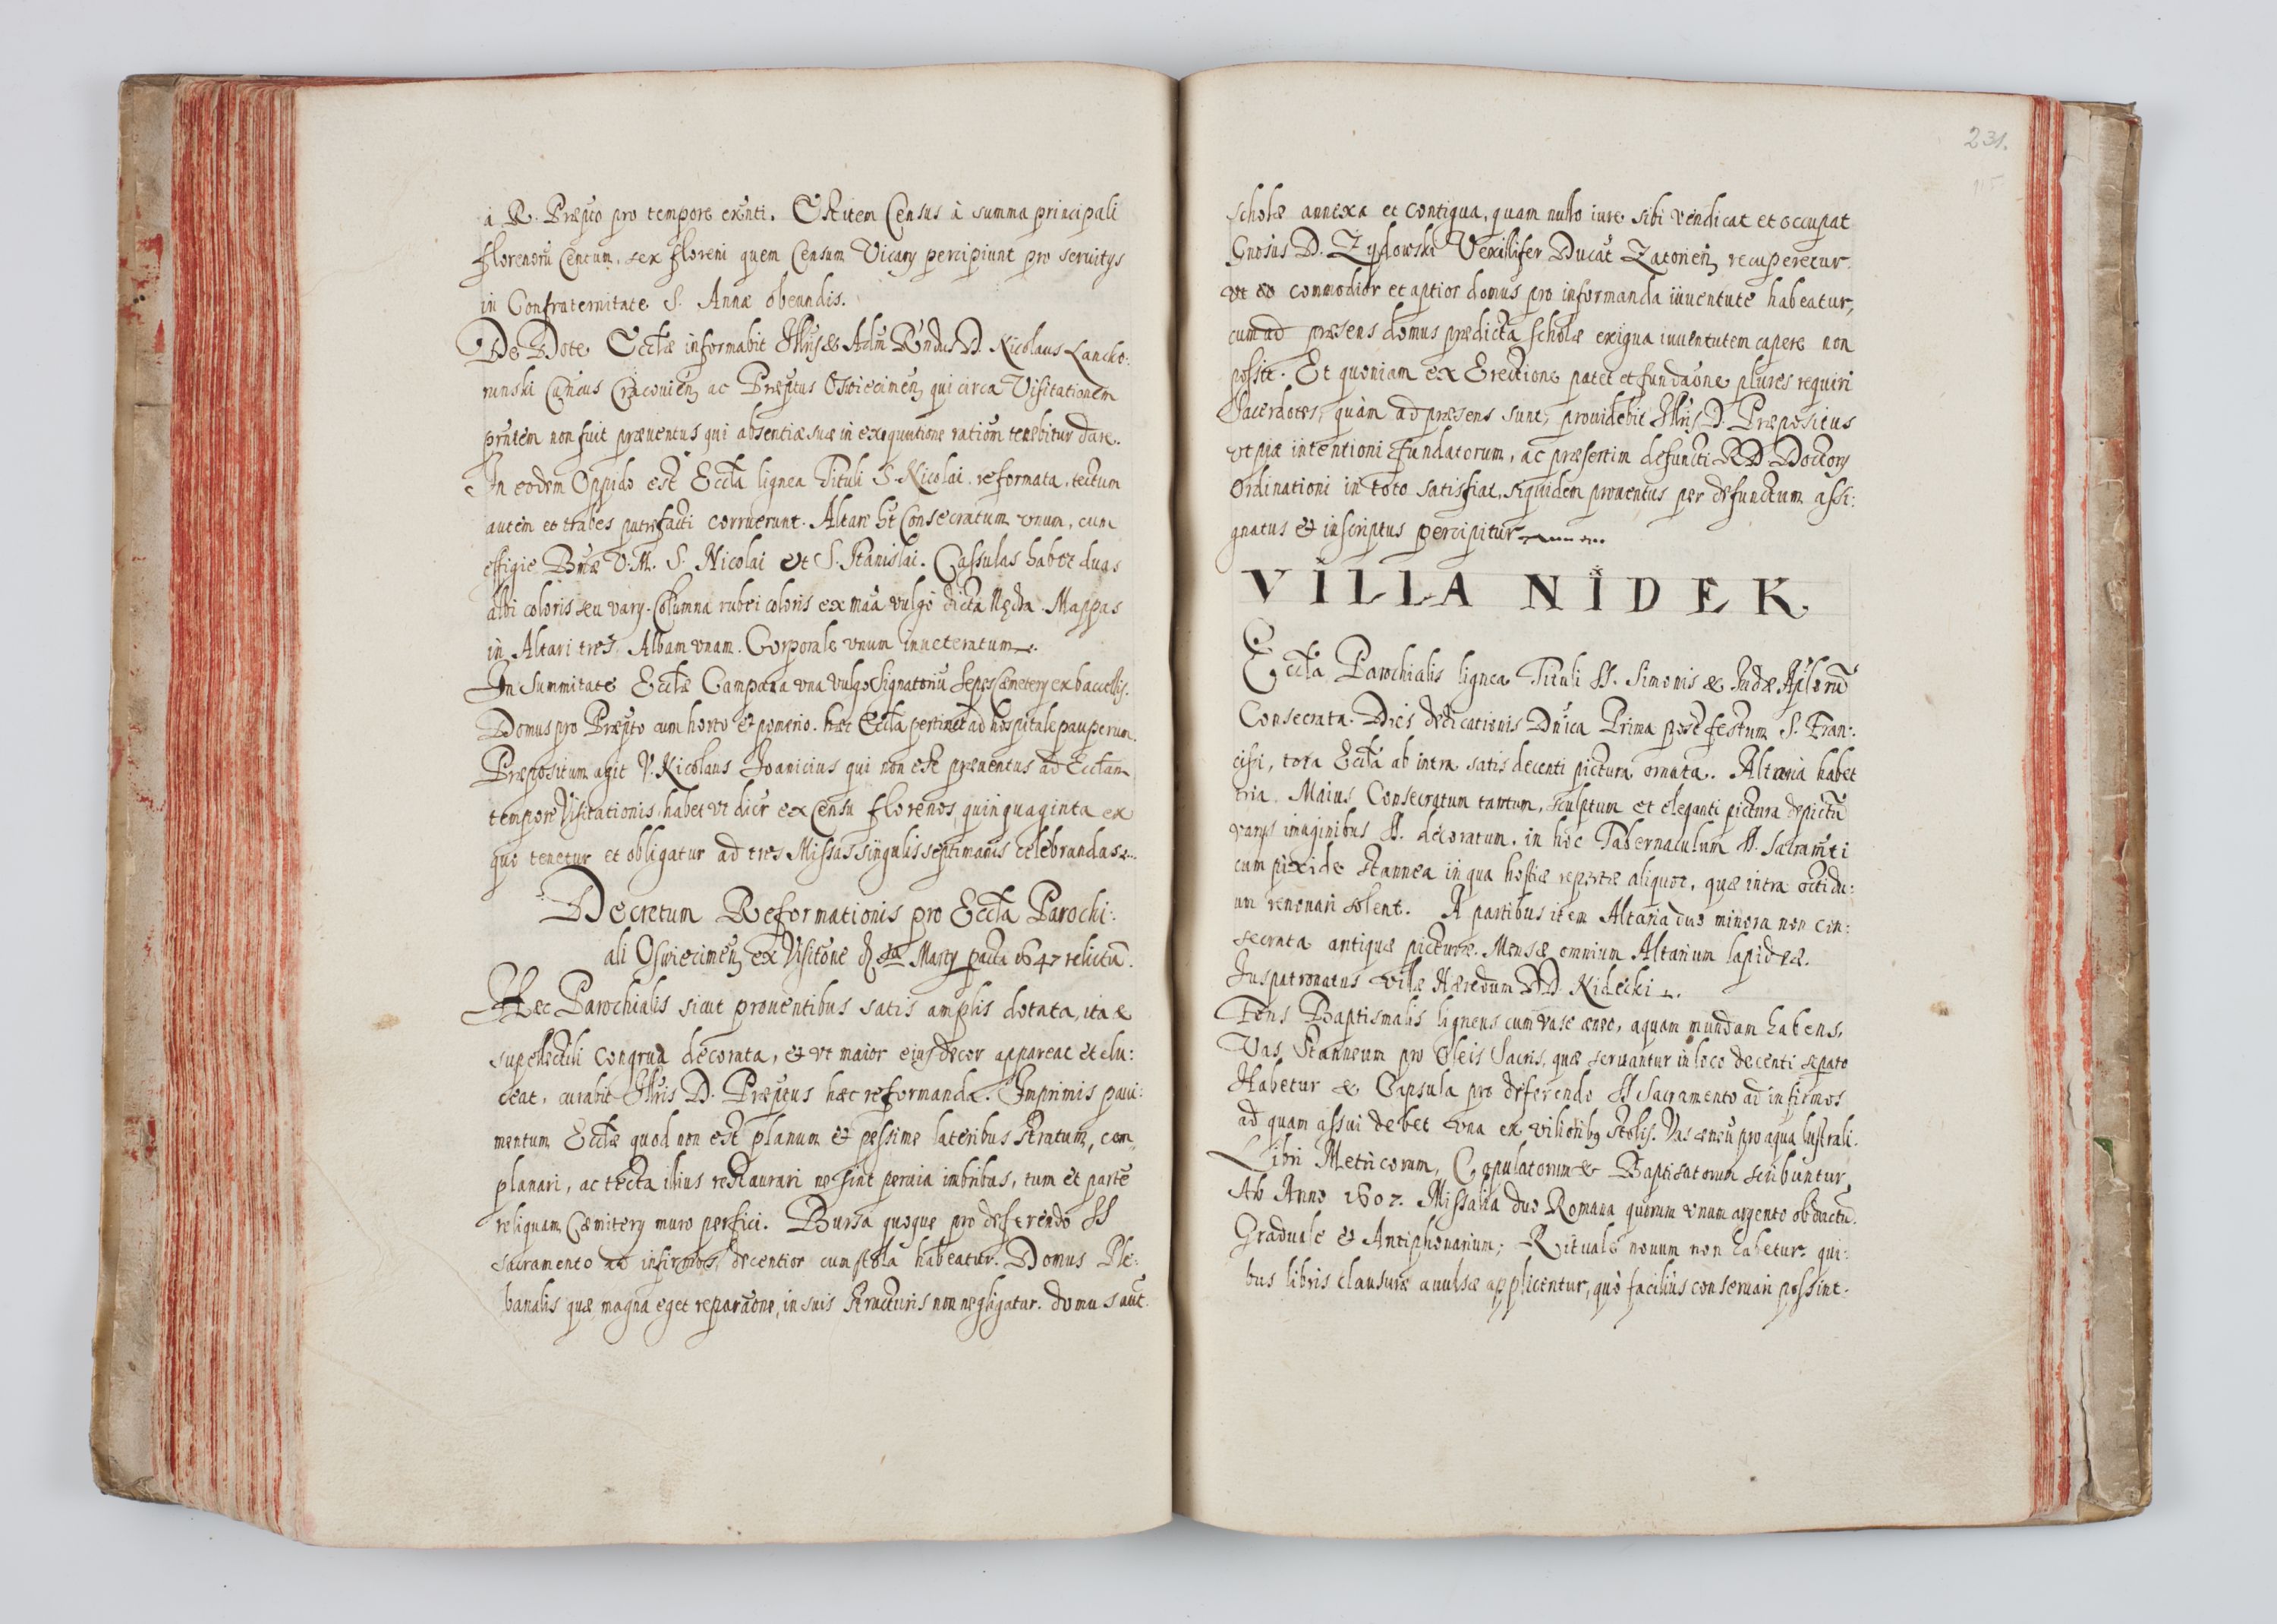 à R. Præpto pro tempore exnti. Est item Census à summa principali
florenorū Centum, sex floreni quem Censum Vicarÿ percipiunt pro seruitÿs
in Confraternitate S. Annæ obeundis.
De Dote Ecclæ informabit Illris & Adm Rndus D. Nicolaus Lancko:
runski Cancus Cracouien, ac Præptus Oswiecimen, qui circa Visitationem
prntem non fuit præuentus qui absentiæ suæ in exequutione ratiōm tenebitur dare.
In eodem Oppido est Eccla lignea Tituli S. Nicolai reformata, tectum
autem et trabes putrefacti corruerunt. Altare ht Consecratum vnum, cum
effigie Btæ V. M. S. Nicolai et S. Stanislai. Cassulas habet duas
albi coloris seu varÿ. Columna rubei coloris ex māa vulgo dicta Mappas
in Altari tres, Albam vnam. Corporale vnum inueteratum.
In Summitate Ecclæ Campana vna vulgo Signatoriū Sepes Cæmeterÿ ex baccellis.
Domus pro Præpto cum horto & pomerio. hæc Eccla pertinet ad hospitale pauperum.
Præpositum agit V. Nicolaus Joanicius qui non est præuentus ad Ecclam
tempore Visitationis, habet vt dicr ex Censu florenos quinquaginta ex
quo tenetur et obligatur ad tres Missas singulis septimanis celebrandas.
Decretum Reformationis pro Eccla Parochi:
ali Oswiecimen, ex Visitōne Martÿ pacta 1647 relictū.
Hæc Parochialis sicut prouentibus satis amplis dotata, ita &
supellectili congrua decorata, & vt maior eius decor appareat et elu:
ceat, curabit Illris D. Præptus hæc reformanda. Imprimis paui:
mentum Ecclæ quod non est planum & pessime lateribus stratum, com
planari, ac tecta illius restaurari ne sint peruia imbribus, tum et parte
reliquam Cæmiterÿ muro perfici. Bursa quoque pro deferendo SS
sacramento ad infirmos, decentior cum stola habeatur. Domus Ple:
banalis quæ magna eget reparāone, in suis structuris non negligatur. domus aut
231.
115
scholæ annexa et contigua, quam nullo iure sibi vendicat et occupat
Gnosus D. Zydowski Vexillifer Ducat Zatorien, recuperetur.
vt eo commodior et aptior domus pro informanda iuuentute habeatur,
cum ad præsens domus prædicta scholæ exigua iuuentutem capere non
possit. Et quoniam ex Erectione patet et fundāone plures requiri
Sacerdotes, quàm ad præsens sunt, prouidebit Illris D. Præpositus
vt piæ intentioni fundatorum, ac præsertim defuncti RD Doctorÿ
Ordinationi in toto satisfiat, siquidem prouentus per defunctum assi:
gnatus & inscriptus percipitur
VILLA NIDEK
Eccla Parochialis lignea Tituli SS. Simonis & Judæ Aplorū
Consecrata. Dies dedicationis Dnica Prima post festum S. Fran:
cisci, tota Eccla ab intra satis decenti pictura ornata. Altaria habet
tria. Maius Consecratum tantum, sculptum et eleganti pictura depictū
varÿs imaginibus SS. decoratum, in hoc Tabernaculum SS. Sacramti
cum pixide stannea in qua hostiæ repertæ aliquot, quæ intra octidu:
um renouari solent. A partibus item Altaria duo minora non con:
secrata antiquæ picturæ. Mensæ omnium Altarium lapideæ.
Juspatronatus villæ Hæredum DD. Nidecki.
Fons Baptismalis ligneus cum vase æneo, aquam mundam habens,
Vas Stanneum pro Oleis Sacris, quæ seruantur in loco decenti separo
Habetur & Capsula pro deferendo SS Sacramento ad infirmos
ad quam assui debet vna ex vilioribg stolis. Vas æneū pro aqua lustrali.
Libri Metricorum, Copulatorum & Baptisatorum scribuntur,
Ab Anno 1607. Missalia duo Romana quorum vnum argento obductū.
Graduale & Antiphonarium; Rituale nouum non habetur. qui:
bus libris clausuræ auulsæ applicentur, quò facilius conseruari possint.